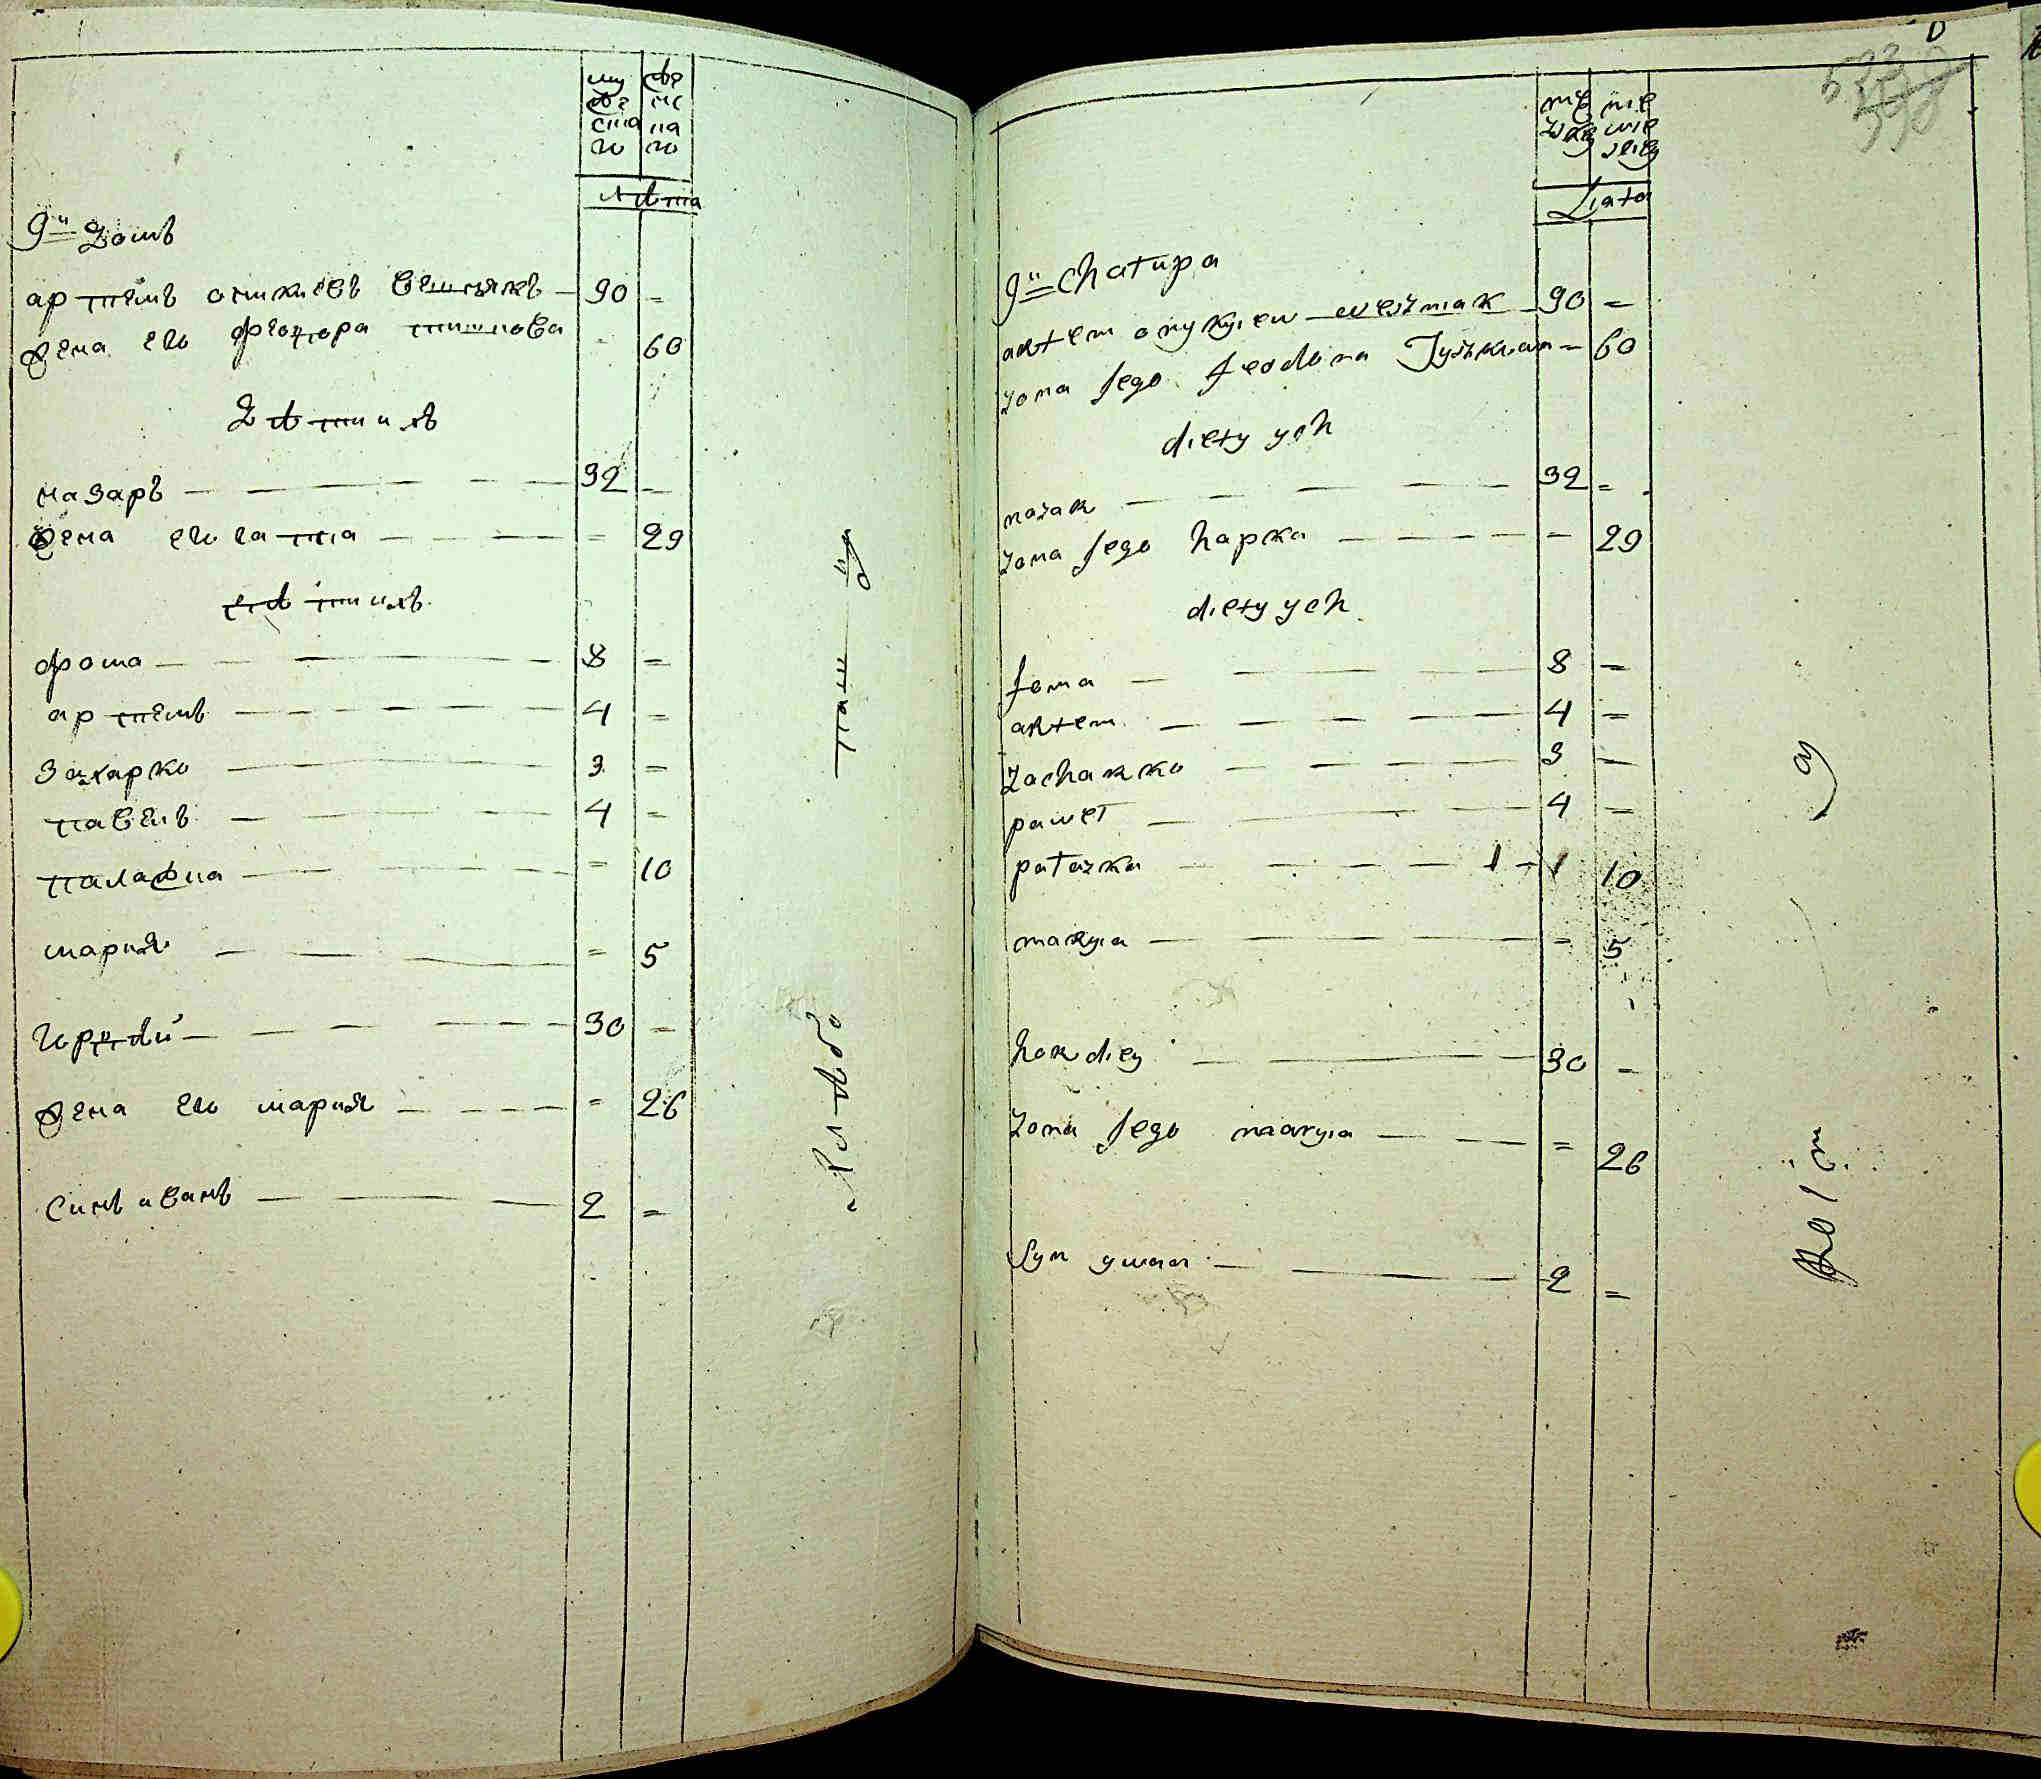 му
же
ска
го
же
нс
ка
го
лѣта
9й Домъ
артемъ оникиевъ вешнякъ — 90 =
жена его феодора тишкова - 60
дѣти ихъ
назаръ — — — — — 32 =
жена его гапка — — — = 29
дѣти ихъ
фома — — — — 8 =
артемъ — — — — 4 =
захарко — — — — 3 =
павелъ — — — — 4 =
палажка — — — — = 10
мария — — — — = 5
гордѣй — — — — 30 =
жена его мария — — — = 26
синъ иванъ — — — 2 =
mę
zkey
mę
wie
skiey
Liata
9y Chatupa
artem onykyiew wesznak — 90 =
zona jego feodora Tyszkwa = 60
diety ych
nazar — — — — 32 =
zona jego hapka — — — = 29
diety ych
foma — — — — 8 =
artem — — — — 4 =
zacharko — — — — 3 =
paweł — — — — 4 =
pałazka — — — — 10
maryia — — — = 5
hordiey — — — 30 =
zona jego maryia — — — = 26
syn ywan — — — 2 =